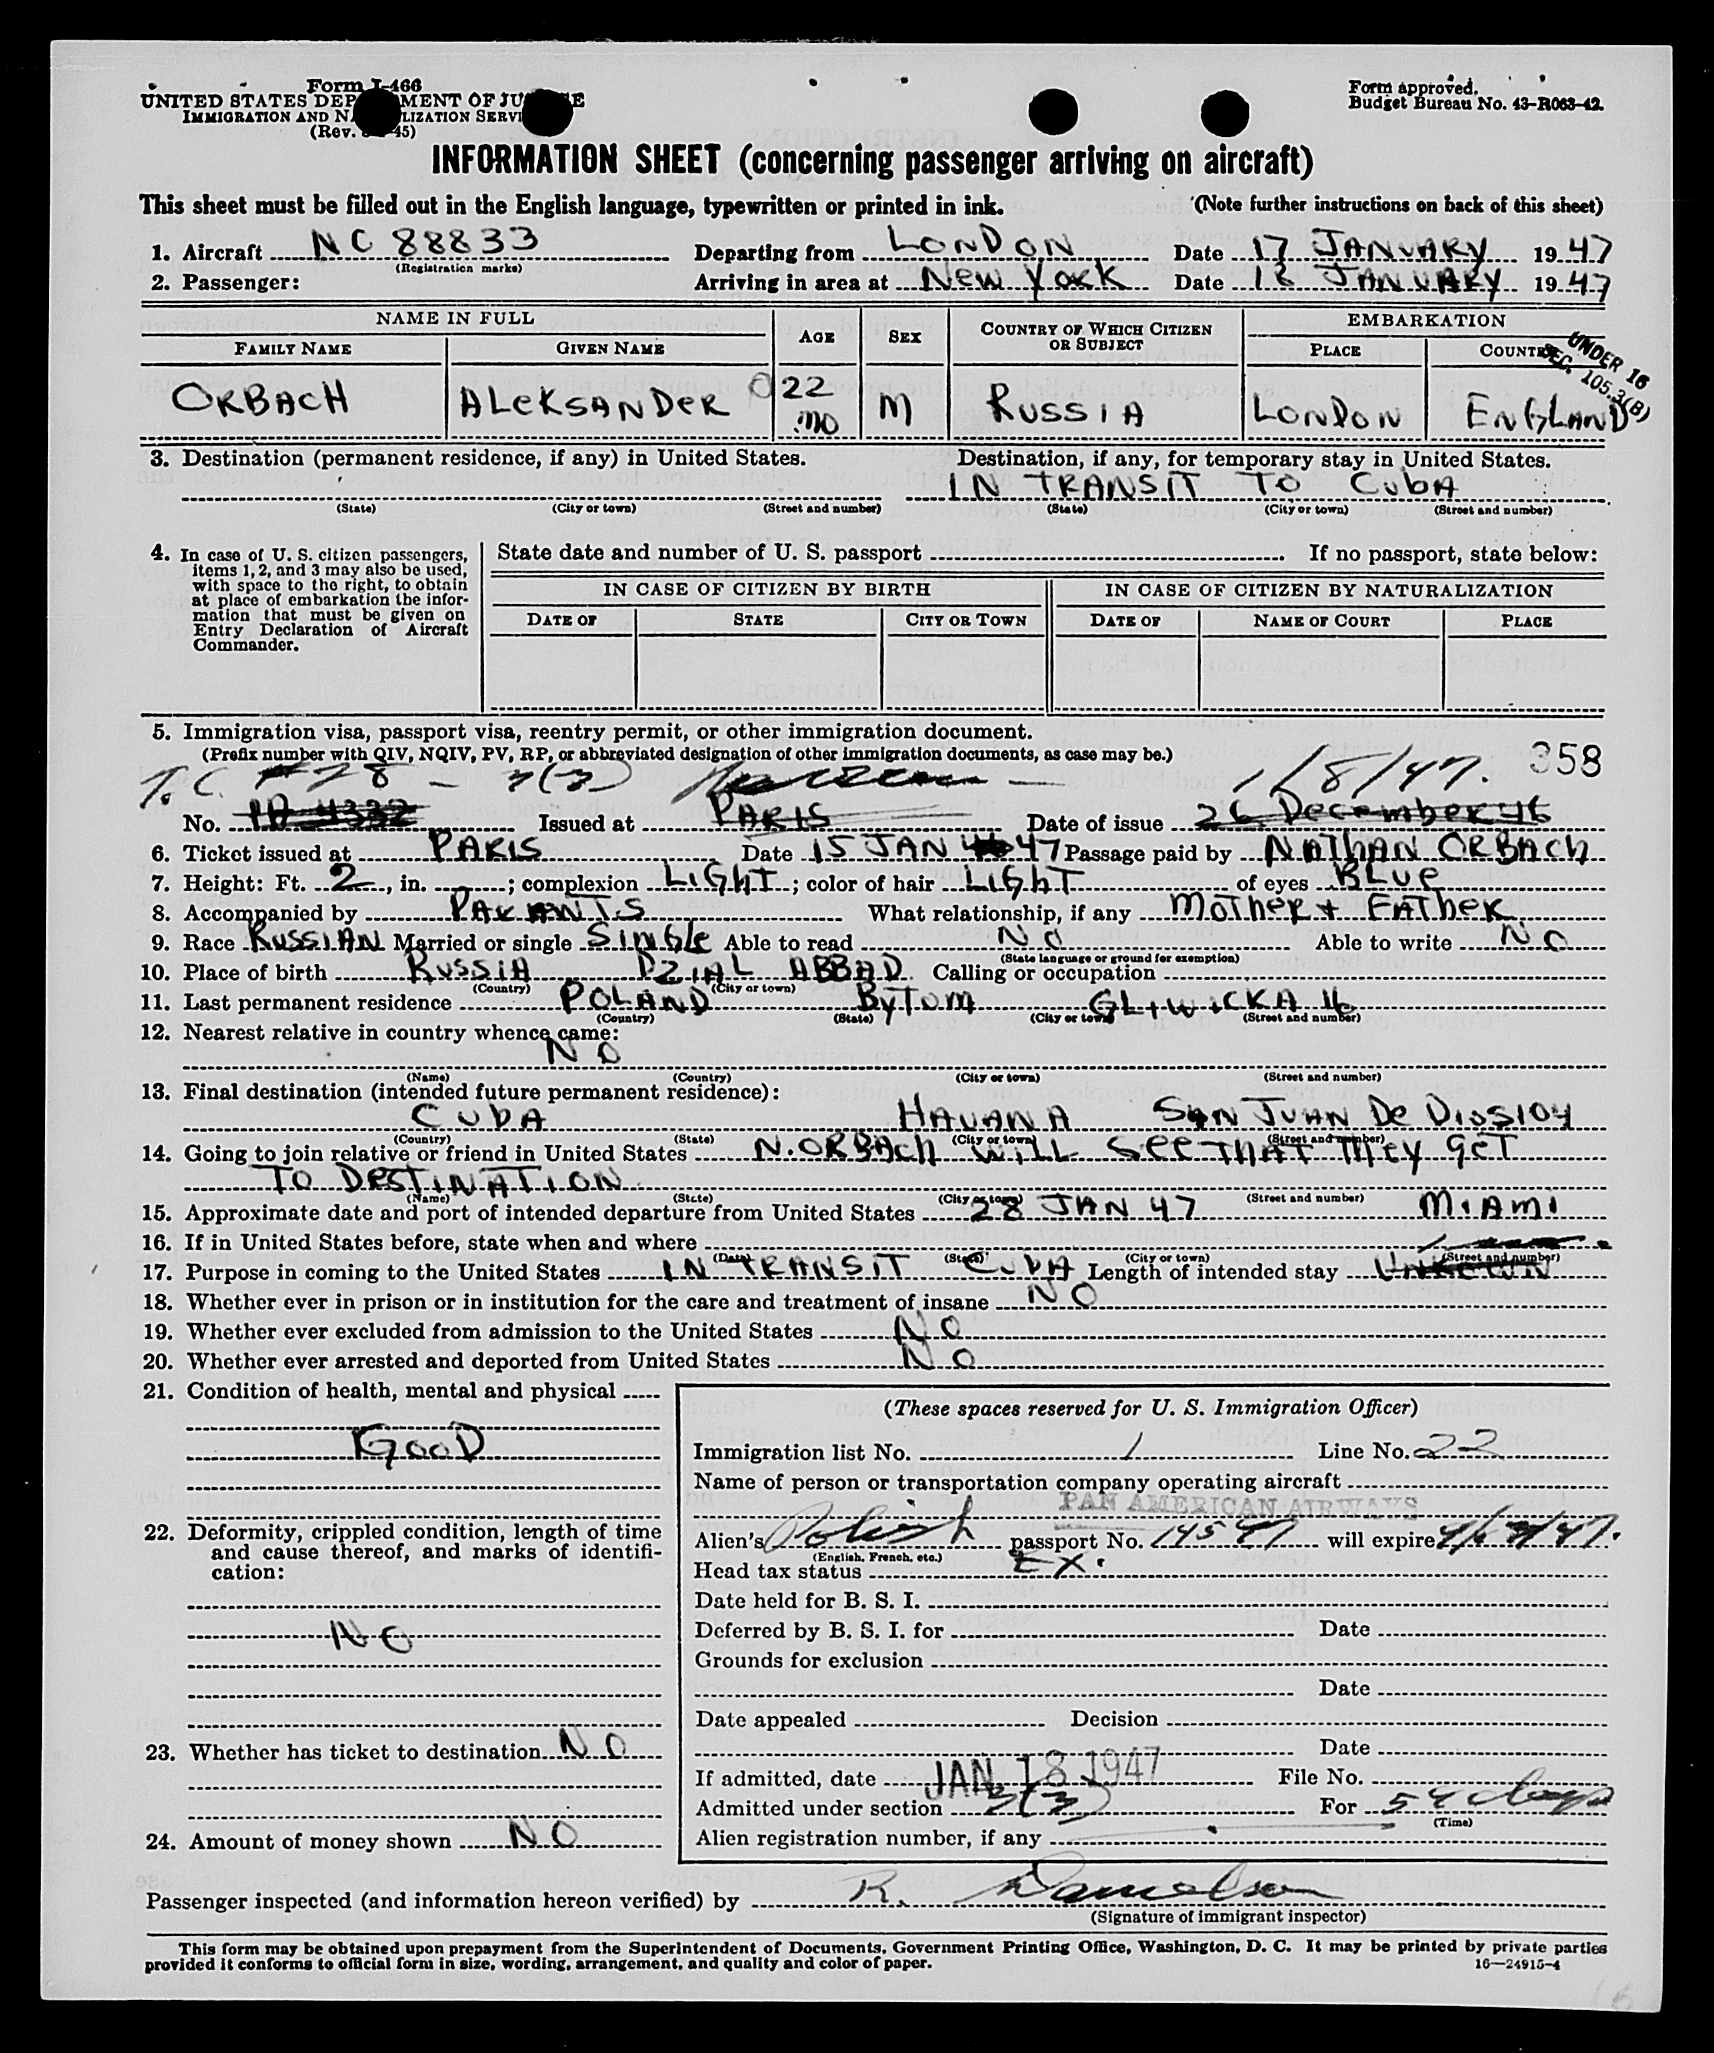 Form I-466
UNITED STATES DEP MENT OF JU E
IMMIGRATION AND NA LIZATION SERVI
(Rev. 45)
Form approved.
Budget Bureau No. 43-R063-42.
INFORMATION SHEET (concerning passenger arriving on aircraft)
This sheet must be filled out in the English language, typewritten or printed in ink. (Note further instructions on back of this sheet)
1. Aircraft NC 88833 Departing from LONDON Date 17 JANUARY 1947
(Registration marks)
2. Passenger: Arriving in area at New York Date 18 JANUARY 1947
NAME IN FULL AGE SEX COUNTRY OF WHICH CITIZEN OR SUBJECT EMBARKATION
FAMILY NAME GIVEN NAME PLACE COUNTRY
UNDER 16
SEC. 105.3(B)
ORBACH ALEKSANDER 22 mo M RUSSIA LONDON ENGLAND
3. Destination (permanent residence, if any) in United States. Destination, if any, for temporary stay in United States.
IN TRANSIT TO CUBA
(State) (City or town) (Street and number) (State) (City or town) (Street and number)
4. In case of U. S. citizen passengers,
items 1, 2, and 3 may also be used,
with space to the right, to obtain
at place of embarkation the infor-
mation that must be given on
Entry Declaration of Aircraft
Commander.
State date and number of U. S. passport If no passport, state below:
IN CASE OF CITIZEN BY BIRTH IN CASE OF CITIZEN BY NATURALIZATION
DATE OF STATE CITY OR TOWN DATE OF NAME OF COURT PLACE
5. Immigration visa, passport visa, reentry permit, or other immigration document.
(Prefix number with QIV, NQIV, PV, RP, or abbreviated designation of other immigration documents, as case may be.)
T.C. #28 - 3(3) 1/8/47. 358
No. 4332 Issued at PARIS Date of issue 26 December 46
6. Ticket issued at PARIS Date 15 JAN 47 Passage paid by NATHAN ORBACH
7. Height: Ft. 2, in. ; complexion LIGHT; color of hair LIGHT of eyes BLUE
8. Accompanied by PARENTS What relationship, if any MOTHER + FATHER
9. Race RUSSIAN Married or single SINGLE Able to read NO Able to write NO
(State language or ground for exemption)
10. Place of birth RUSSIA DZIAL ABBAD Calling or occupation
(Country) (City or town)
11. Last permanent residence POLAND BYTOM GLIWICKA 16
(Country) (State) (City or town) (Street and number)
12. Nearest relative in country whence came:
NO
(Name) (Country) (City or town) (Street and number)
13. Final destination (intended future permanent residence):
CUBA HAVANA SAN JUAN DE DIOS 104
(Country) (State) (City or town) (Street and number)
14. Going to join relative or friend in United States N. ORBACH WILL SEE THAT THEY GET
TO DESTINATION
(Name) (State) (City or town) (Street and number)
15. Approximate date and port of intended departure from United States 28 JAN 47 MIAMI
16. If in United States before, state when and where
(Date) (State) (City or town) (Street and number)
17. Purpose in coming to the United States IN TRANSIT CUBA Length of intended stay
18. Whether ever in prison or in institution for the care and treatment of insane NO
19. Whether ever excluded from admission to the United States NO
20. Whether ever arrested and deported from United States NO
21. Condition of health, mental and physical
GOOD
22. Deformity, crippled condition, length of time
and cause thereof, and marks of identifi-
cation:
NO
23. Whether has ticket to destination NO
24. Amount of money shown NO
(These spaces reserved for U. S. Immigration Officer)
Immigration list No. 1 Line No. 22
Name of person or transportation company operating aircraft
PAN AMERICAN AIRWAYS
Alien's Polish passport No. 14547 will expire
(English, French, etc.)
Head tax status EX.
Date held for B. S. I.
Deferred by B. S. I. for Date
Grounds for exclusion
Date
Date appealed Decision
Date
If admitted, date JAN 18 1947 File No.
Admitted under section 3(3) For 54 days
(Time)
Alien registration number, if any
Passenger inspected (and information hereon verified) by R. Danielson
(Signature of immigrant inspector)
This form may be obtained upon prepayment from the Superintendent of Documents, Government Printing Office, Washington, D. C. It may be printed by private parties
provided it conforms to official form in size, wording, arrangement, and quality and color of paper.
16—24915-4